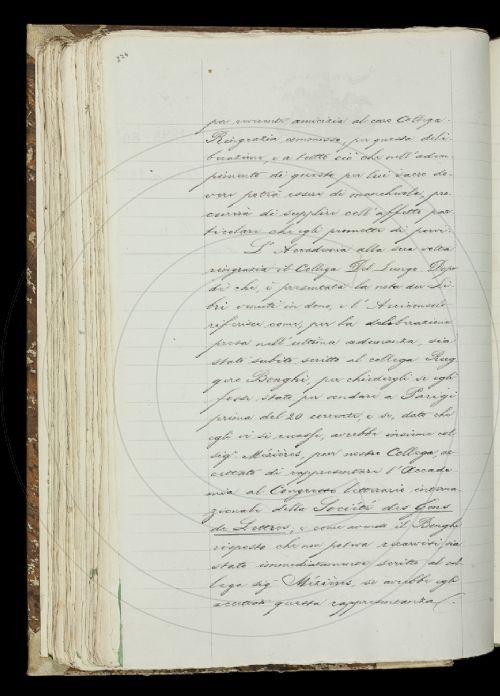 224
per vivente amicizia al caro Collega.
Ringrazia commosso, per questa deli-
berazione, e a tutto ciò che nell'adem-
pimento di questo per lui sacro do-
vere potrà esservi di manchevole, pro-
curerà di supplire coll'affetto par-
ticolare che egli promette di porvi.
L'Accademia alla sua volta
ringrazia il Collega Del Lungo. Dopo
di che, è presentata la nota dei Li-
bri venuti in dono, e l'Arciconsolo
riferisce come, per la deliberazione
presa nell'ultima adunanza, sia
stato subito scritto al collega Rug-
gero Bonghi, per chiedergli se egli
fosse stato per andare a Parigi
prima del 20 corrente, e se, dato che
egli vi si recasse, avrebbe insieme col
sig. Mézières, pur nostro Collega, ac-
cettato di rappresentare l'Accade-
mia al Congresso letterario interna-
zionale della Société des Gens
de Lettres, e come avendo il Bonghi
risposto che non poteva recarvisi, sia
stato immediatamente scritto al col-
lega sig. Mézières, se avrebbe egli
accettato questa rappresentanza.